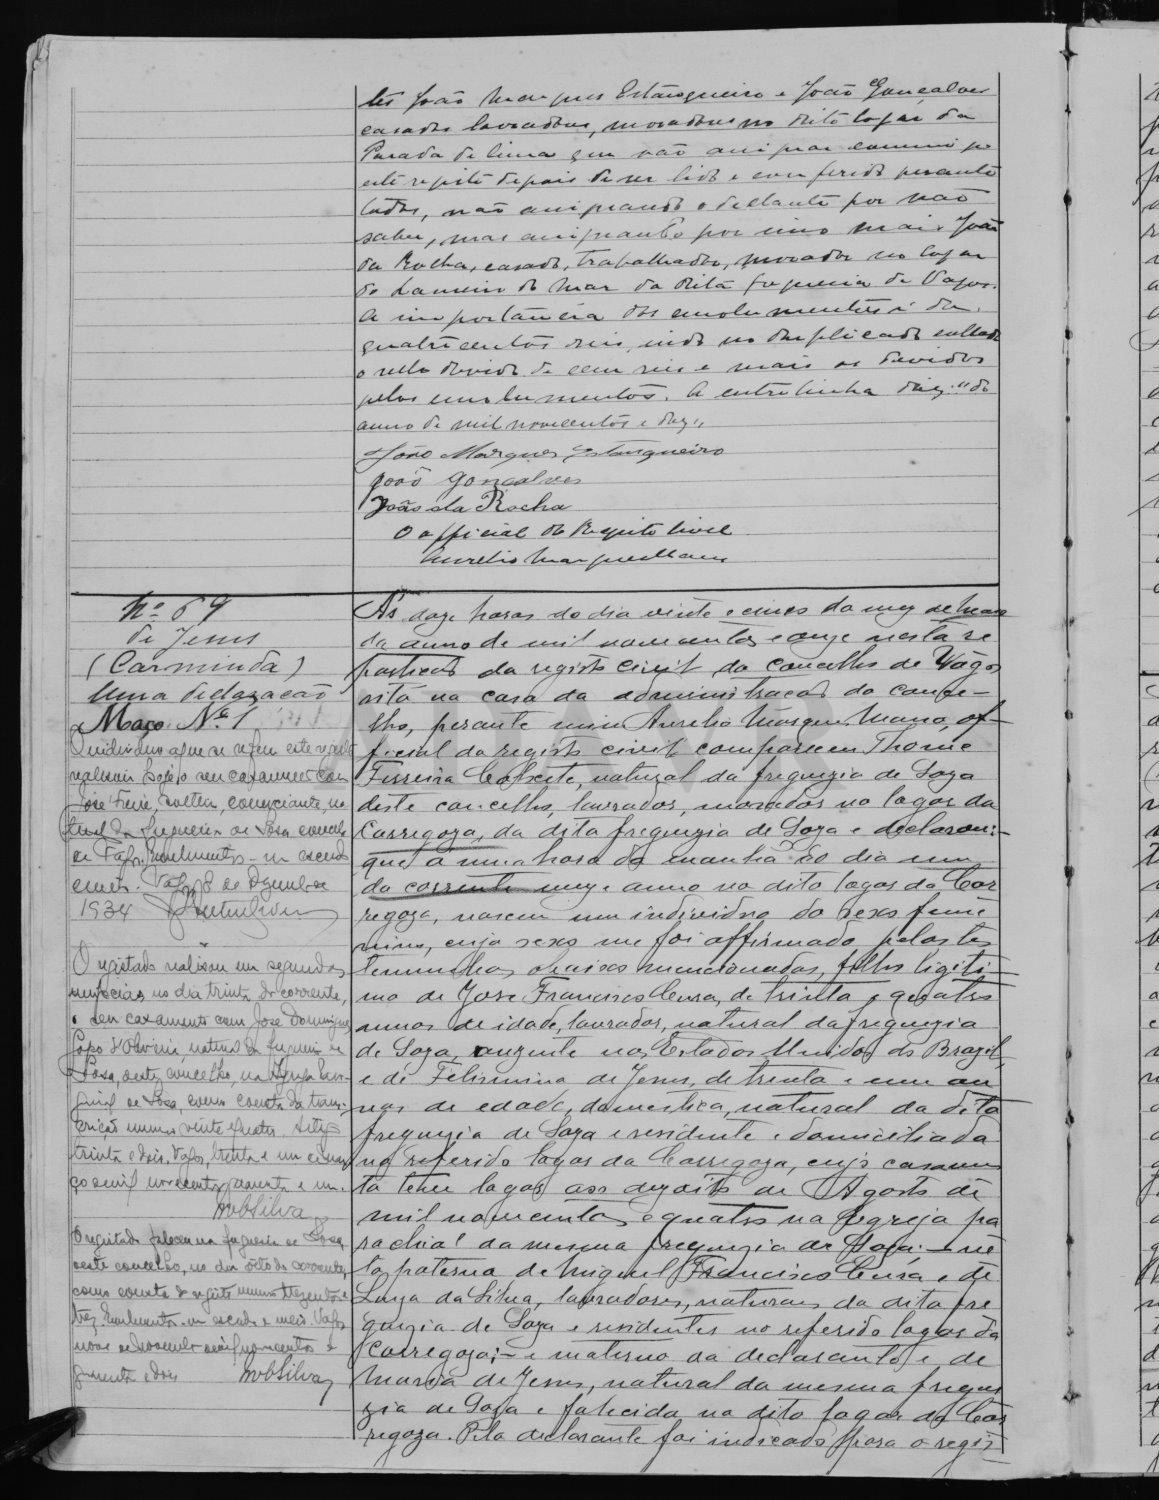 tes João Marques Estanqueiro e João Gonçalves
casados lavradores, moradores no dito logar da
Parada de Cima que vão assignar commigo
este registo depois de ser lido e conferido perante
todos, não assignando o declarante por não
saber, mas assignando por elle João
da Rocha, casado, trabalhador, morador no logar
do Lameiro do Mar da dita freguesia de Vagos.
A importancia dos emolumentos é de
quatrocentos reis, indo no duplicado collado
o sello devido de cem reis e mais os devidos
pelos emolumentos. A entrelinha diz: "do
anno de mil novecentos e dez".
João Marques Estanqueiro
João Gonçalves
João da Rocha
O official do Registo Civil
Aurelio Marques Mano
Nº 69
de Jesus
(Carminda)
Uma declaração
Maço Nº 1
O individuo a que se refere este registo
realisou hoje o seu casamento com
José Freire, solteiro, comerciante, na
freguesia de Sosa, concelho
de Vagos. Emolumentos um escudo
Vagos, 8 de Dezembro de
1934
O registado realisou em segundas
nupcias no dia trinta do corrente,
o seu casamento com José Domingues
Papo d'Oliveira, natural da freguesia de
Sosa, deste concelho, na Igreja
de Sosa, como consta da trans-
crição numero vinte e quatro
trinta e dois. Vagos, trinta e um de março
de mil novecentos quarenta e um.
MobSilva
O registado faleceu na freguesia de Sosa,
deste concelho, no dia oito do corrente,
como consta do registo numero trezentos e
tres. Emolumentos um escudo e meio. Vagos
nove de Dezembro mil novecentos e
quarenta e dois MobSilva
Ás doze horas do dia vinte e cinco do mez de Março
do anno de mil novecentos e onze nesta re
partição do registo civil do concelho de Vagos
sita na casa da administração do conce-
lho, perante mim Aurelio Marques Mano, of-
ficial do registo civil compareceu Thomé
Ferreira Calxete, natural da freguezia de Soza
deste concelho, lavrador, morador no logar da
Carregoza, da dita freguezia de Soza e declarou:-
que á uma hora da manhã do dia um
do corrente mez e anno no dito logar da Car
regoza, nasceu um individuo do sexo femi
nino, cujo sexo me foi affirmado pelas tes
temunhas abaixo mencionadas, filho legiti-
mo de José Francisco Cura, de trinta e quatro
annos de idade, lavrador, natural da freguezia
de Soza, auzente nos Estados Unidos do Brazil,
e de Felismina de Jesus, de trinta e um an
nos de edade, domestica, natural da dita
freguezia de Soza e residente e domiciliada
no referido logar da Carregoza, cujo casamen
to teve logar aos dezoito de Agosto de
mil novecentos e quatro na Egreja pa
rochial da mesma freguezia de Soza; - ne
to paterno de Miguel Francisco Cura e de
Luiza da Silva, lavradores, naturaes da dita fre
guezia de Soza e residentes no referido logar da
Carregoza; - e materno do declarante e de
Maria de Jesus, natural da mesma fregue
zia de Soza e falecida no dito logar da Car
regoza. Pelo declarante foi indicado para o regis-